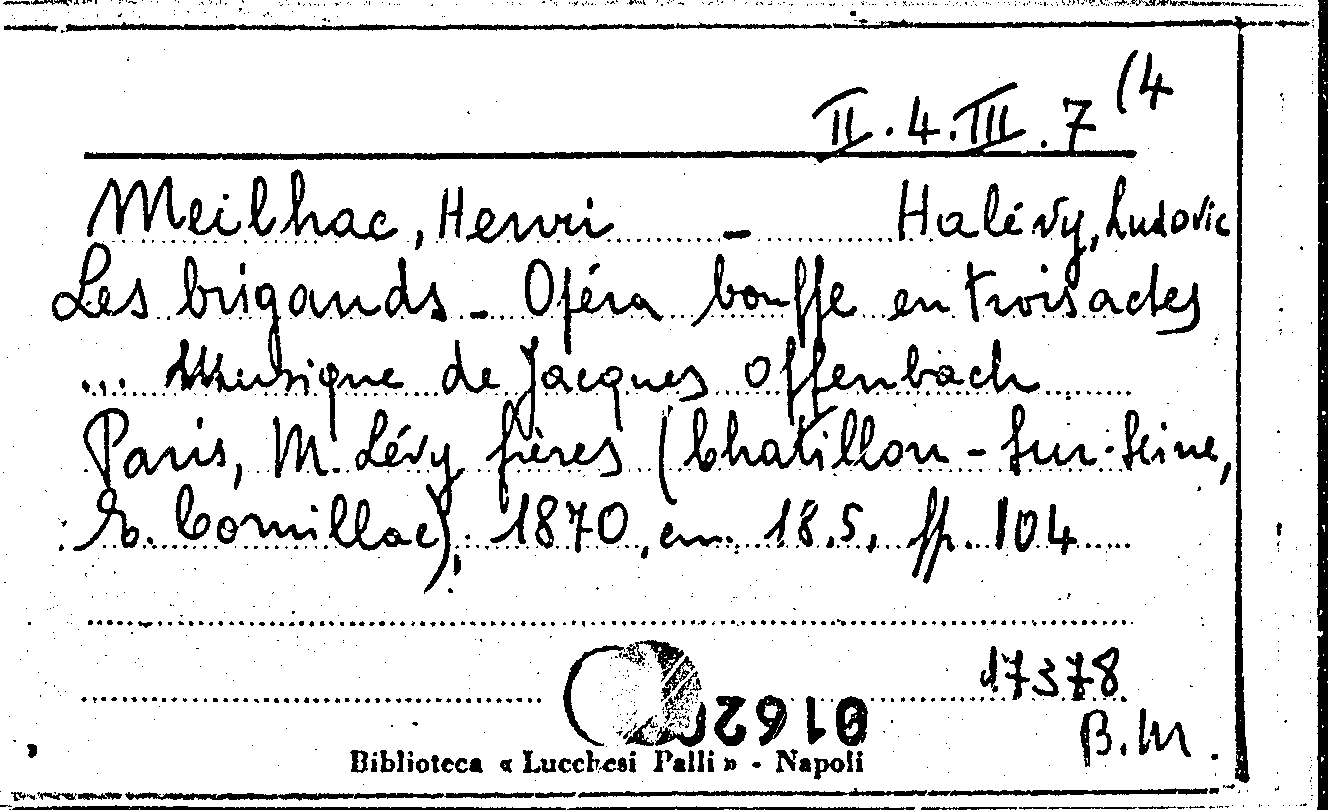 II.4.III.7(4
Meilhac, Henri - Halévy, Ludovic
Les brigands - Opéra bouffe en trois actes
... Musique de Jacques Offenbach
Paris, M. Lévy frères (Chatillon-sur-Seine,
E. Cornillac), 1870, cm. 18.5, pp. 104
17378
B.M.
Biblioteca « Lucchesi Palli » - Napoli